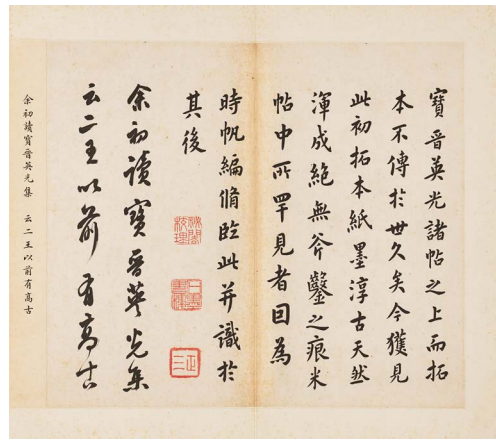 寶晉英光諸帖之上而拓
本不傳於世久矣今獲見
此初拓本紙墨淳古天然
渾成絕無斧鑿之痕米
帖中所罕見者因為
時帆編脩臨此并識於
其後
余初讀寶晉英光集
云二王以前有高古
余初讀寶晉英光集 云二王以前有高古